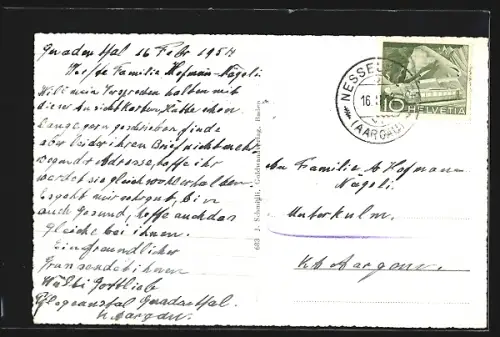 Gnadenthal 16 Febr 1954
Werthe Familie Hofmann-Nägeli
Will mein Versprechen halten mit
dieser Ansichtkarten Hätte schon
lange gern geschrieben finde
aber leider ihren Brief nicht mehr
wegen der Adresse, hoffe ihr
werdet sie gleich wohl erhalten.
Es geht mir sehr gut, bin
auch Gesund, hoffe auch das
gleiche bei ihnen.
Ein freundlicher
Gruss sendet ihnen
Gottlieb
Pflegeanstalt Gnadenthal.
Kt Aargau.
683 J. Schmidli, Goldwandverlag, Baden
NESSE
16.
(AARGAU)
10 HELVETIA
An Familie A Hofmann
Nägeli
Unterkulm.
Kt Aargau.